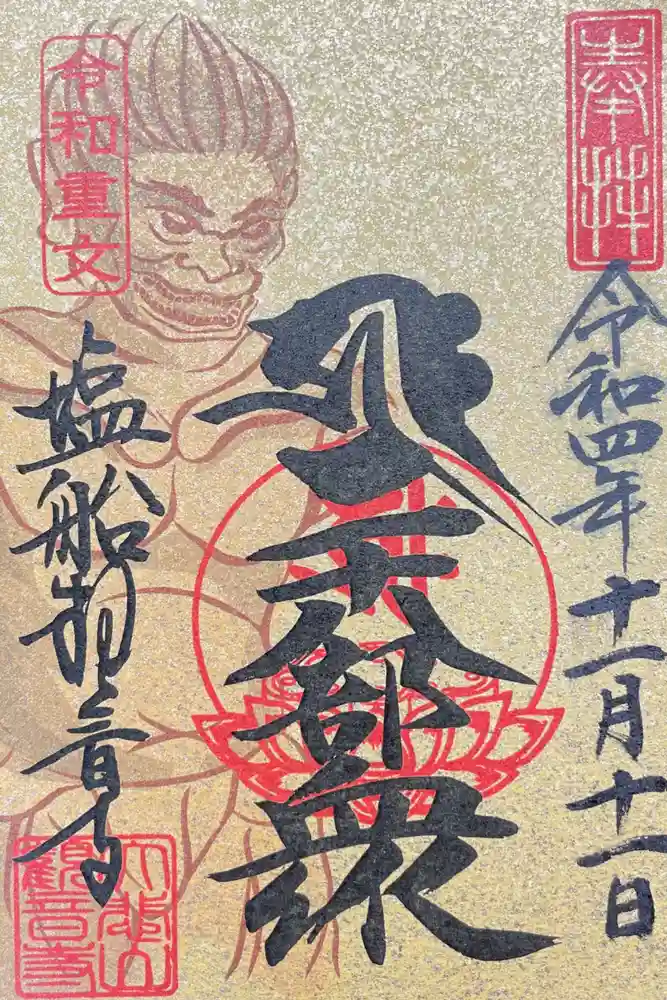 奉拝
令和四年十一月十一日
二十八部衆
令和重文
塩船観音寺
大悲山
観音寺